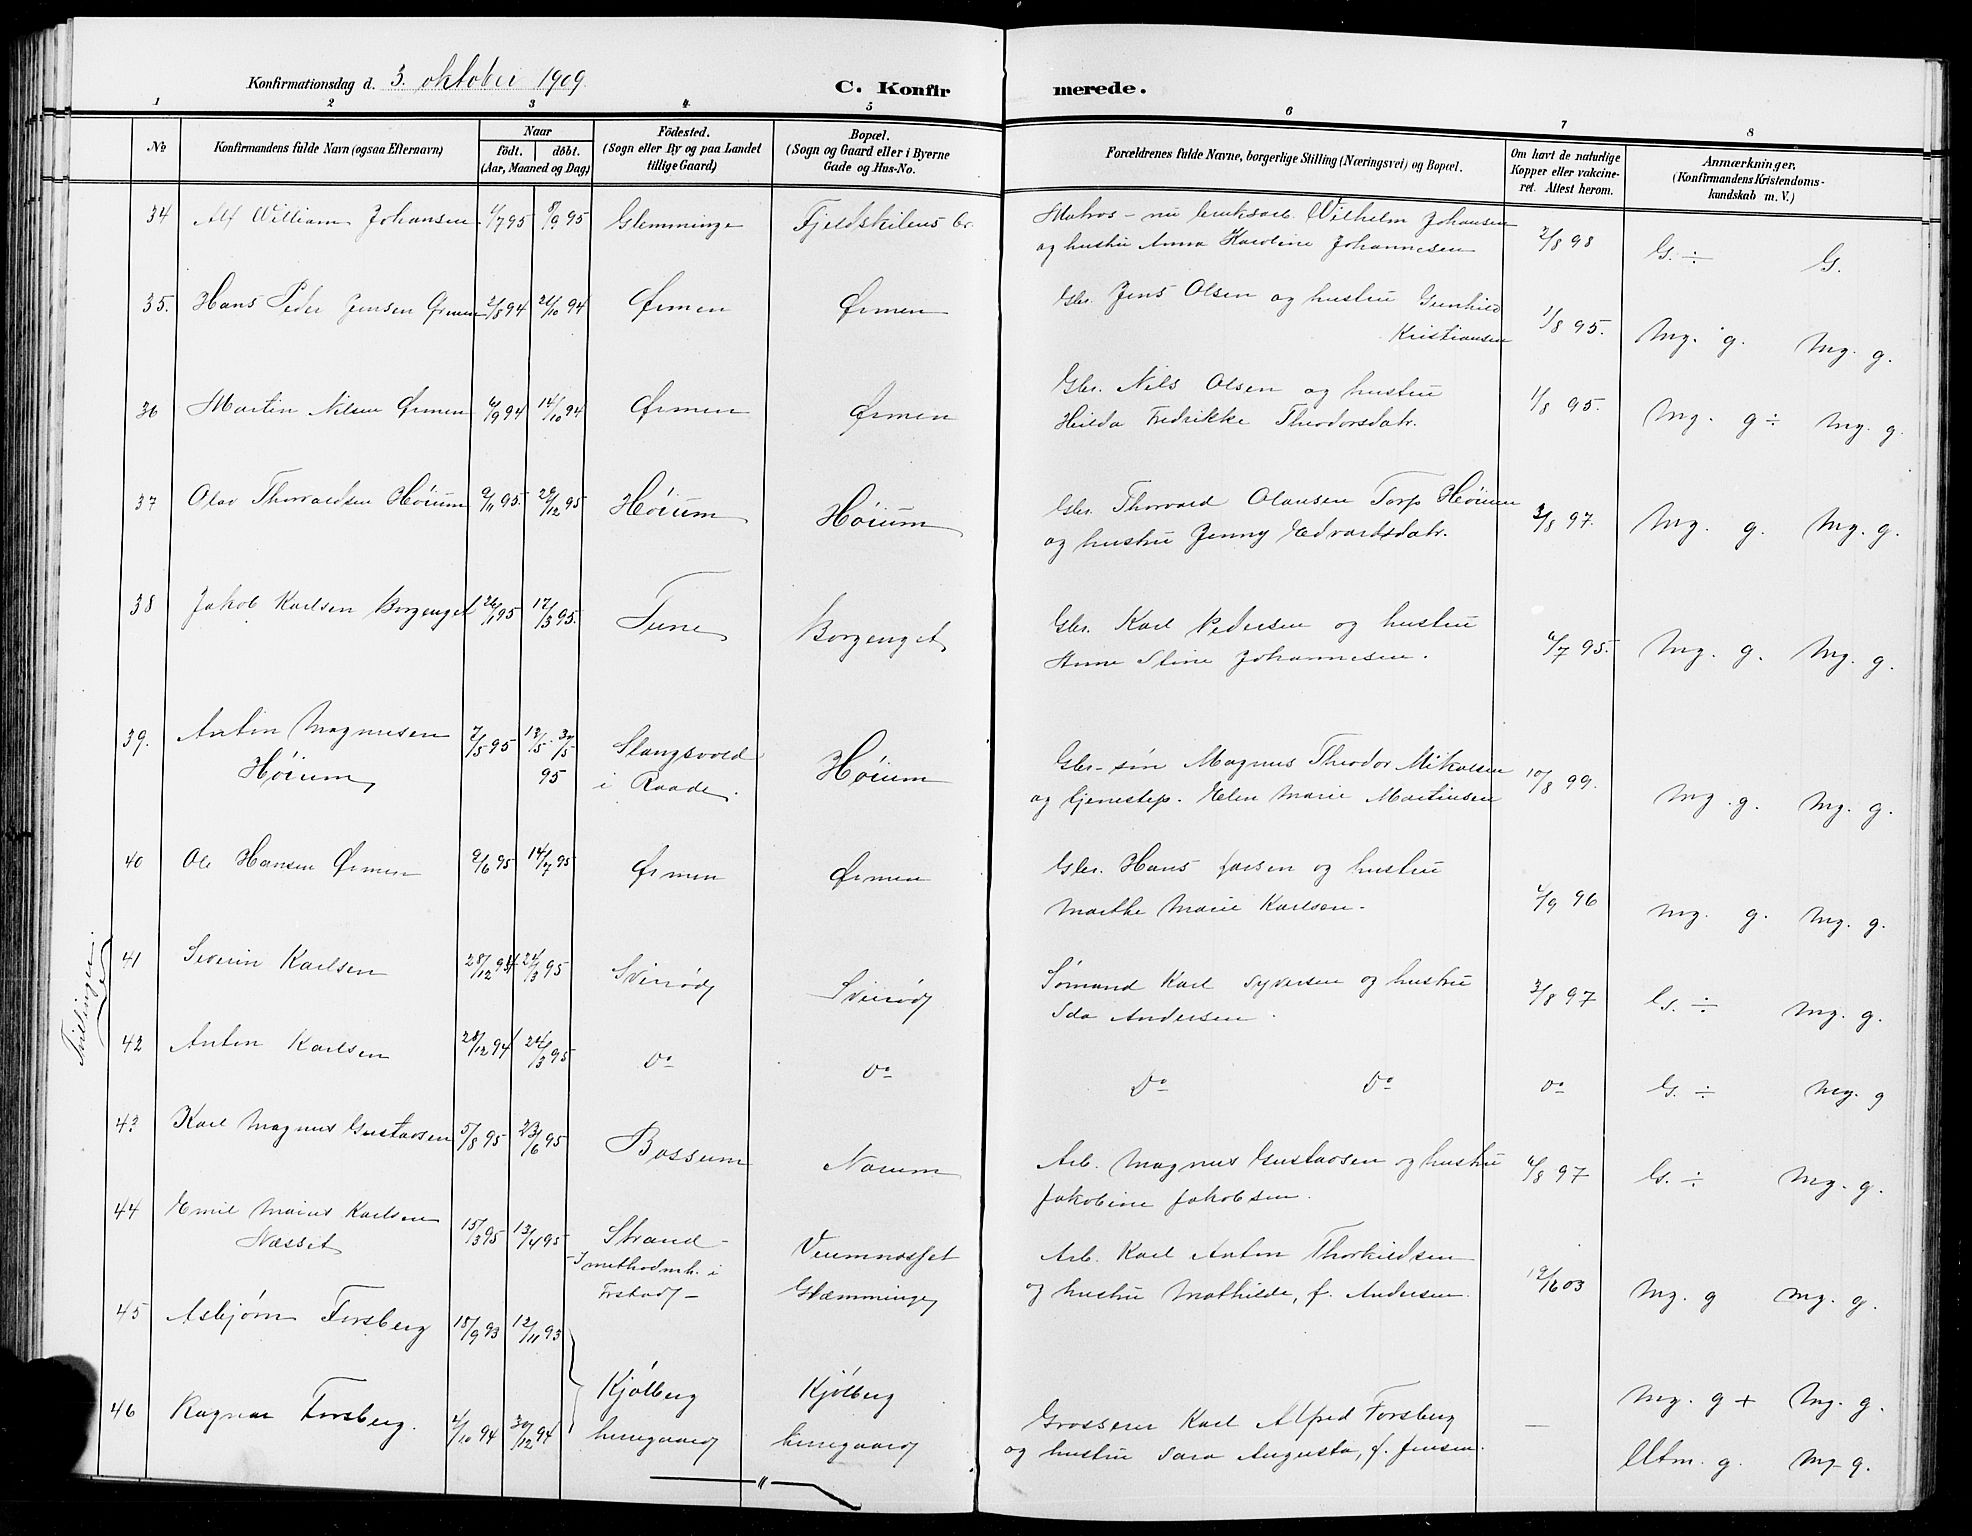 Konfirmationsdag d. 3. oktober 1909
C. Konfirmerede.
1 2 3 4 5 6 7 8
No
Konfirmandens fulde Navn (ogsaa Efternavn)
Naar
födt. döbt.
(Aar, Maaned og Dag)
Födested.
(Sogn eller By og paa Landet
tillige Gaard)
Bopæl.
(Sogn og Gaard eller i Byerne
Gade og Hus-No.
Forældrenes fulde Navne, borgerlige Stilling (Næringsvei) og Bopæl.
Om havt de naturlige
Kopper eller vakcine-
ret. Attest herom.
Anmærkninger.
(Konfirmandens Kristendoms-
kundskab m. V.)
34 Alf William Johansen 1/7 95 8/9 95 Glemminge Fjeldskilens br. Matros - nu bruksarb. Wilhelm Johansen
og hustru Anna Karoline Johannesen 2/8 98 G. ÷ G.
35. Hans Peder Jensen Ørmen 2/8 94 21/10 94 Ørmen Ørmen Gbr. Jens Olsen og hustru Gunhild
Kristiansen 1/8 95. Mg. g. Mg. g.
36 Martin Nilsen Ørmen 6/9 94 14/10 94 Ørmen Ørmen Gbr. Nils Olsen og hustru
Hulda Fredrikke Theodorsdatr. 1/8 95. Mg. g ÷ Mg. g.
37 Olav Thorvaldsen Höium 9/11 95. 29/12 95 Höium Höium Gbr. Thorvald Olausen Torp Höium
og hustru Jenny Edvardsdatr. 3/8 97. Mg. g. Mg. g.
38 Jakob Karlsen Borgenget 26/1 95 17/3 95. Tune Borgenget Gbr. Karl Pedersen og hustru
Anne Stine Johannesen. 6/7 95. Mg. g. Mg. g.
39. Anton Magnusen
Höium 7/5 95 13/5 30/5
95 Slangsvold
i Raade. Höium Gbr-sön Magnus Theodor Mikalsen
og tjenestep. Elen Marie Martinsen 10/8 99. Mg. g. Mg. g.
40 Ole Hansen Ørmen 9/6 95 14/7 95 Ørmen Ørmen Gbr. Hans Jarsen og hustru
Marthe Marie Karlsen. 1/9 96 Mg. g. Mg. g.
Tvillinger.
41 Severin Karlsen 28/12 94 24/3 95 Svinöd Svinöd Sömand Karl Syversen og hustru
Ida Andersen. 3/8 97 G. ÷ Mg. g.
42 Anton Karlsen 28/12 94 24/3 95 Do Do Do Do Do G. ÷ Mg. g
43 Karl Magnus Gustavsen 5/8 95 23/6 95 Bossum Norum Arb. Magnus Gustavsen og hustru
Jakobine Jakobsen. 6/8 97 G. ÷ Mg. g.
44 Emil Marius Karlsen
Næsset 15/3 95 13/4 95 Strand -
- I methodmh. i
Frstad - Veumnæsset
Glæmminge Arb. Karl Anton Thorkildsen
og hustru Mathilde, f. Andersen. 19/6 03 Mg. g Mg. g.
45 Asbjørn Forsberg 18/9 93 12/11 93 Mg. g + Mg. g.
46 Ragnar Forsberg. 4/10 94 30/12 94 Kjölberg
herregaard Kjölberg
herregaard Grosserer Karl Alfred Forsberg
og hustru Sara Augusta, f. Jensen. — Utm. g. Mg. g.